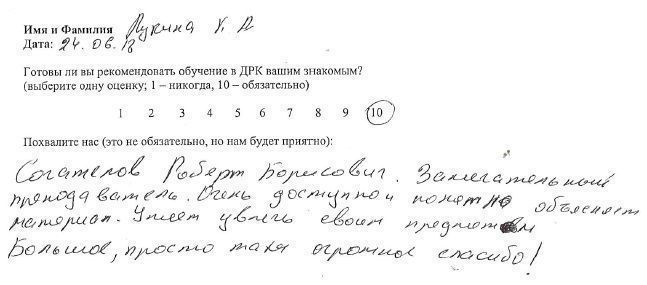 Имя и Фамилия Лукина Х. А
Дата: 24. 06. 13
Готовы ли вы рекомендовать обучение в ДРК вашим знакомым?
(выберите одну оценку; 1 – никогда, 10 – обязательно)
1 2 3 4 5 6 7 8 9 10
Похвалите нас (это не обязательно, но нам будет приятно):
Согателов Роберт Борисович. Замечательный
преподаватель. Очень доступно и понятно объясняет
материал. Умеет увлечь своим предметом
Большое, просто таки огромное спасибо!